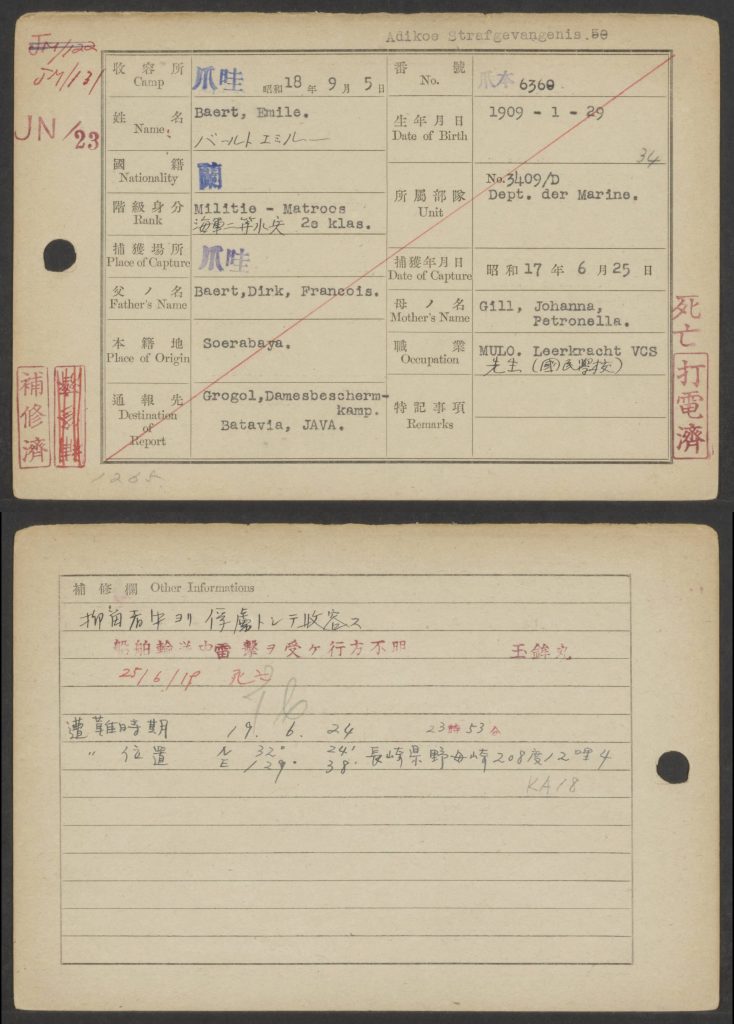 Adikoe Strafgevangenis.58
JM/122
JM/131
JN/23
收容所 Camp 爪哇 昭和18年9月5日
番號 No. 爪本 6360
姓名 Name: Baert, Emile.
バールト エミルー
生年月日 Date of Birth 1909 - 1 - 29
34
國籍 Nationality 蘭
所屬部隊 Unit No. 3409/D
Dept. der Marine.
階級身分 Rank Militie - Matroos
海軍二等水兵 2e klas.
捕獲場所 Place of Capture 爪哇
捕獲年月日 Date of Capture 昭和17年6月25日
父ノ名 Father's Name Baert,Dirk, Francois.
母ノ名 Mother's Name Gill, Johanna,
Petronella.
本籍地 Place of Origin Soerabaya.
職業 Occupation MULO. Leerkracht VCS
先生(國民學校)
通報先 Destination of Report Grogol,Damesbescherm-
kamp.
Batavia, JAVA.
特記事項 Remarks
補修濟
死亡
打電濟
1265
補修欄 Other Informations
抑留者中ヨリ俘虜トシテ收容ス
船舶輸送中雷擊ヲ受ケ行方不明 玉鉾丸
25/6/19 死亡
遭難時期 19. 6. 24 23時53分
〃 位置 N 32° 24'
E 129° 38' 長崎県野母崎208度12哩4
KA18